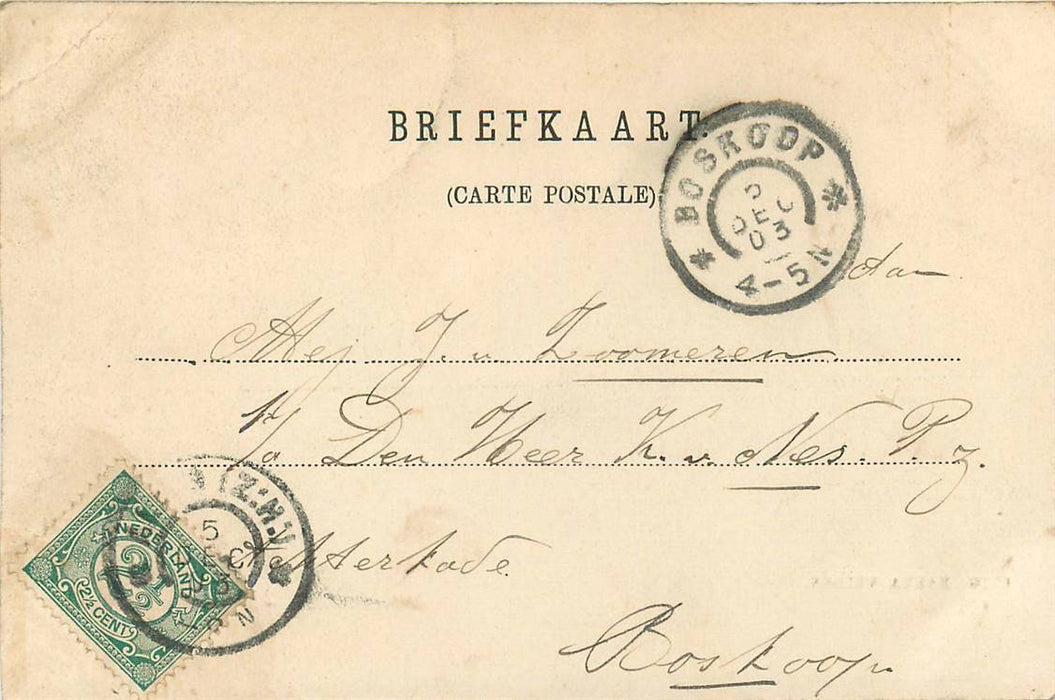 BRIEFKAART.
(CARTE POSTALE)
BOSKOOP
DEC
03
4-5 N
Aan
Mej J. v. Zoomeren
p/a Den Heer K. v. Nes. Pz.
Achterkade
Boskoop
(Z:H.)
5
NEDERLAND
2½
2½ CENT